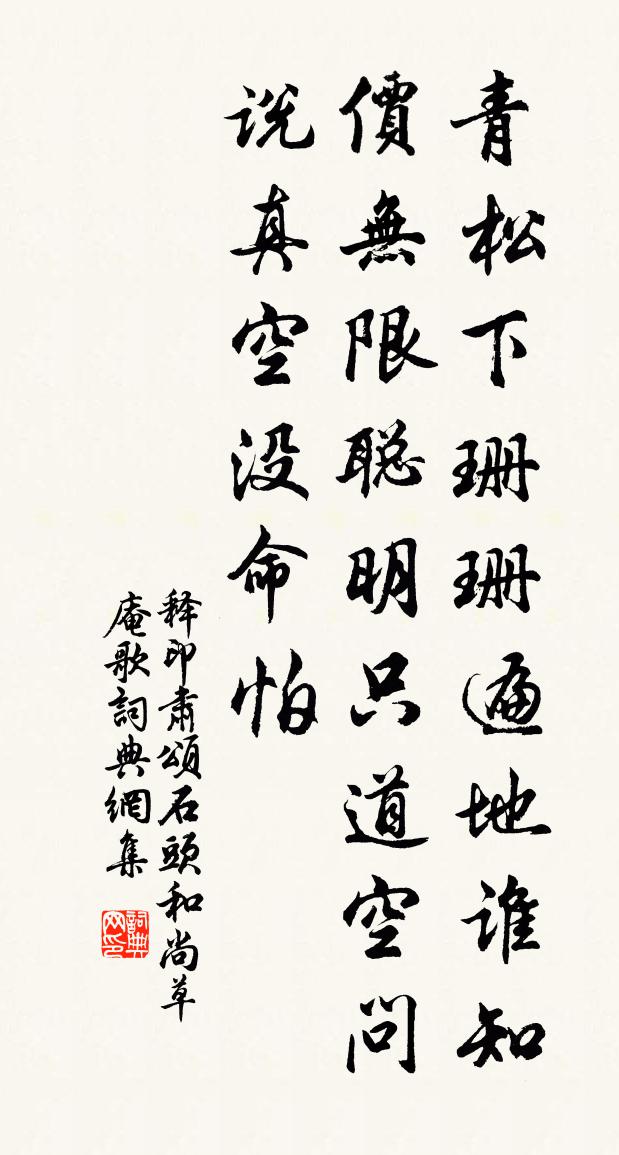 青松下珊珊遍地谁知
價無限聪明只道空问
说真空没命怕
释印肃頌石頭和尚草
庵歌詞典網集
詞典网印